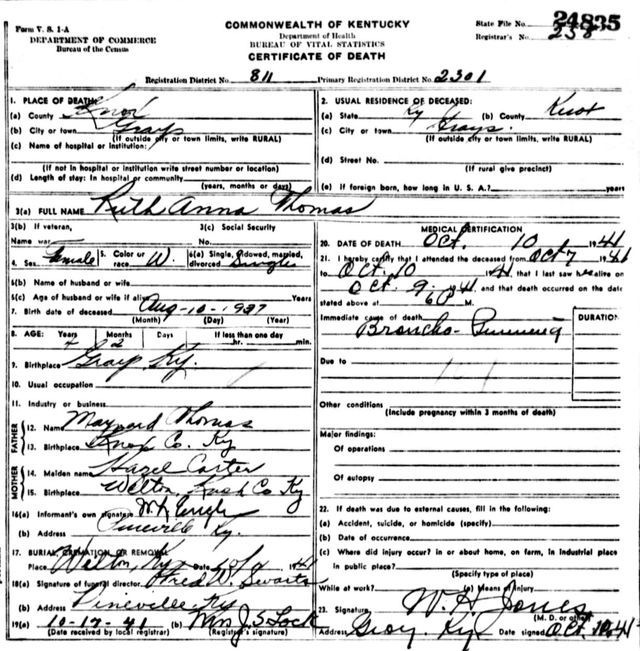 Form V. S. 1-A
DEPARTMENT OF COMMERCE
Bureau of the Census
COMMONWEALTH OF KENTUCKY
Department of Health
BUREAU OF VITAL STATISTICS
CERTIFICATE OF DEATH
State File No. 24835
Registrar's No.
Registration District No. 811 Primary Registration District No. 2301
1. PLACE OF DEATH:
(a) County Knox
(b) City or town Grays
(If outside city or town limits, write RURAL)
(c) Name of hospital or institution:
(If not in hospital or institution write street number or location)
(d) Length of stay: In hospital or community
(years, months or days)
2. USUAL RESIDENCE OF DECEASED:
(a) State Ky (b) County Knox
(c) City or town Grays.
(If outside city or town limits, write RURAL)
(d) Street No.
(If rural give precinct)
(e) If foreign born, how long in U. S. A.? years
3(a) FULL NAME Ruth Anna Thomas
3(b) If veteran, 3(c) Social Security
Name war No.
4. Sex female 5. Color or race W. 6(a) Single, widowed, married, divorced Single
6(b) Name of husband or wife
6(c) Age of husband or wife if alive Years
7. Birth date of deceased Aug-10-1937
(Month) (Day) (Year)
8. AGE: Years Months Days If less than one day
4 2 hr. min.
9. Birthplace Grays Ky.
10. Usual occupation
11. Industry or business
FATHER
12. Name Maynard Thomas
13. Birthplace Knox Co. Ky
MOTHER
14. Maiden name Hazel Carter
15. Birthplace Welton, Co Ky
16(a) Informant's own signature
(b) Address Pineville Ky.
17. BURIAL, CREMATION OR REMOVAL
Place Welton, Ky Date 1941
18(a) Signature of funeral director W. Swarts
(b) Address Pineville Ky
19(a) 10-17-41 (b) Mrs J. S Lock
(Date received by local registrar) (Registrar's signature)
MEDICAL CERTIFICATION
20. DATE OF DEATH Oct. 10 1941
21. I hereby certify that I attended the deceased from Oct 7 1941
to Oct. 10 1941, that I last saw h alive on
Oct. 9. 1941, and that death occurred on the date
stated above at 6 P M.
Immediate cause of death DURATION
Broncho-
Due to
Other conditions
(Include pregnancy within 3 months of death)
Major findings:
Of operations
Of autopsy
22. If death was due to external causes, fill in the following:
(a) Accident, suicide, or homicide (specify)
(b) Date of occurrence
(c) Where did injury occur? in or about home, on farm, in industrial place
in public place?
(Specify type of place)
While at work? (e) Means of injury
23. Signature W. H. Jones
(M. D. or other)
Address Gray. Ky. Date signed Oct. 41